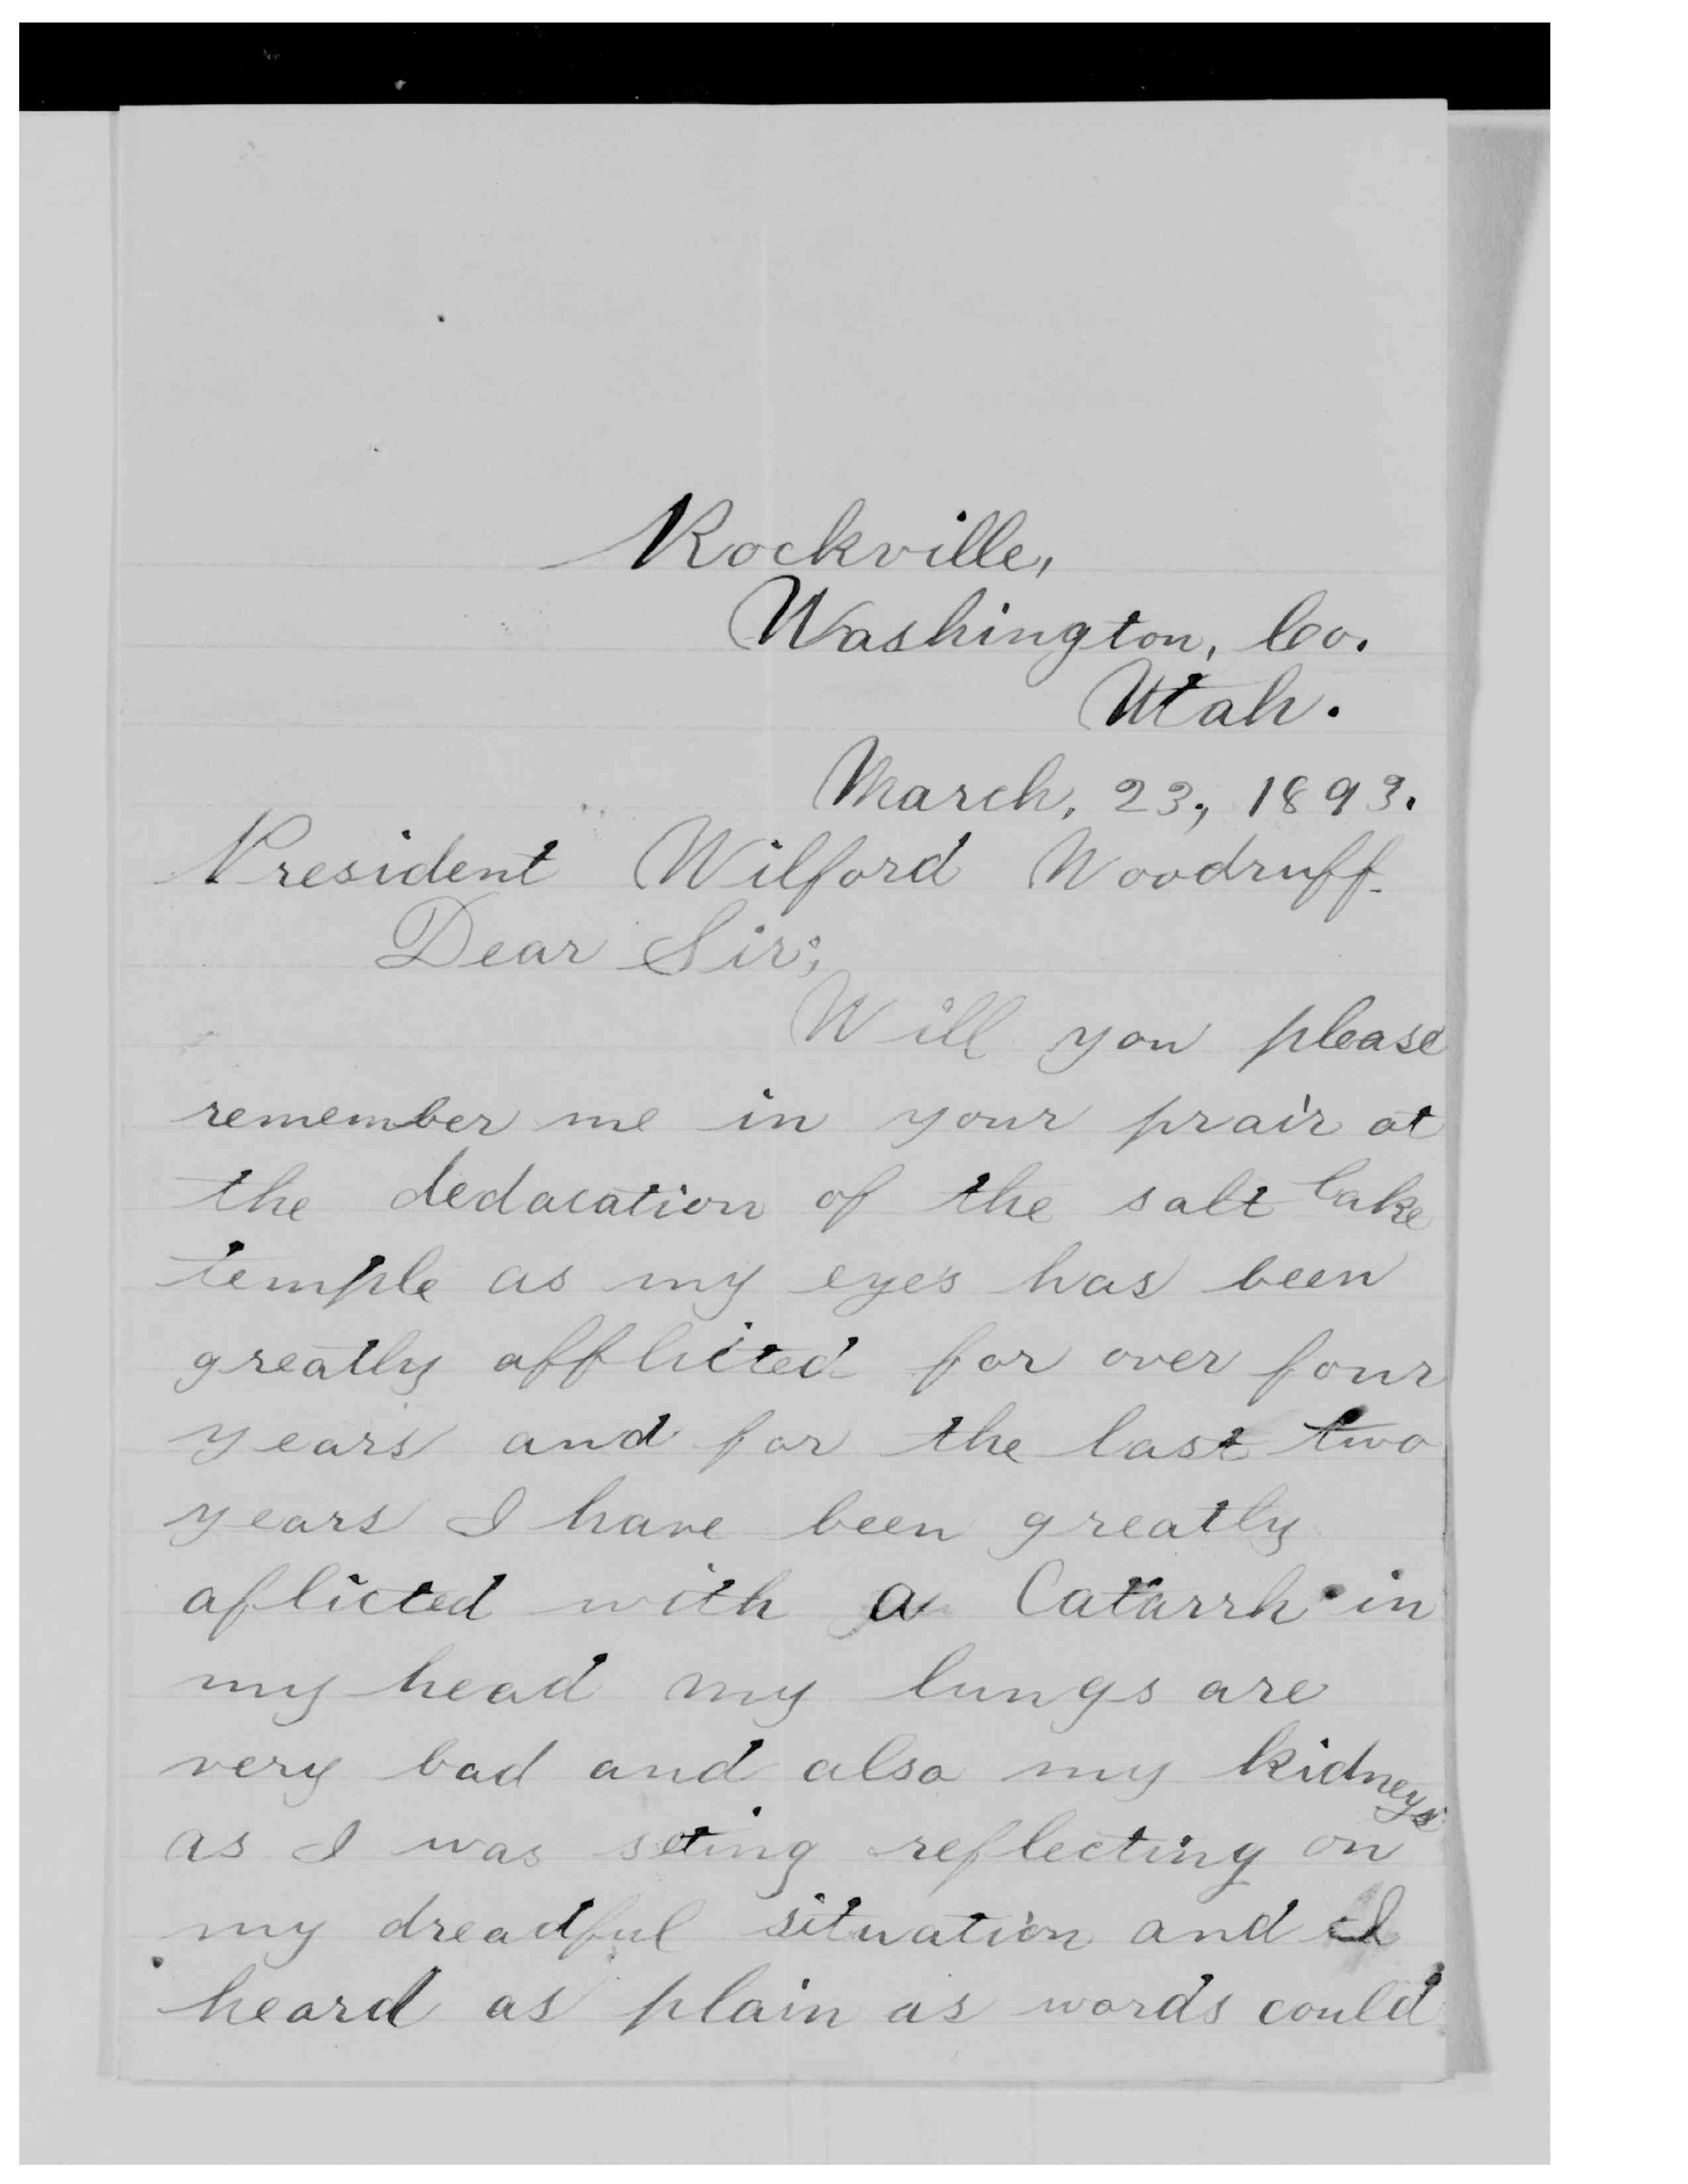 Rockville,
Washington, Co.
Utah.
March, 23, 1893.
President Wilford Woodruff.
Dear Sir;
Will you please
remember me in your prair at
the dedacation of the salt lake
temple as my eyes has been
greatly afflicted for over four
years and for the last two
years I have been greatly
aflicted with a Catarrh in
my head my lungs are
very bad and also my kidneys
as I was seting reflecting on
my dreadful situation and I
heard as plain as words could